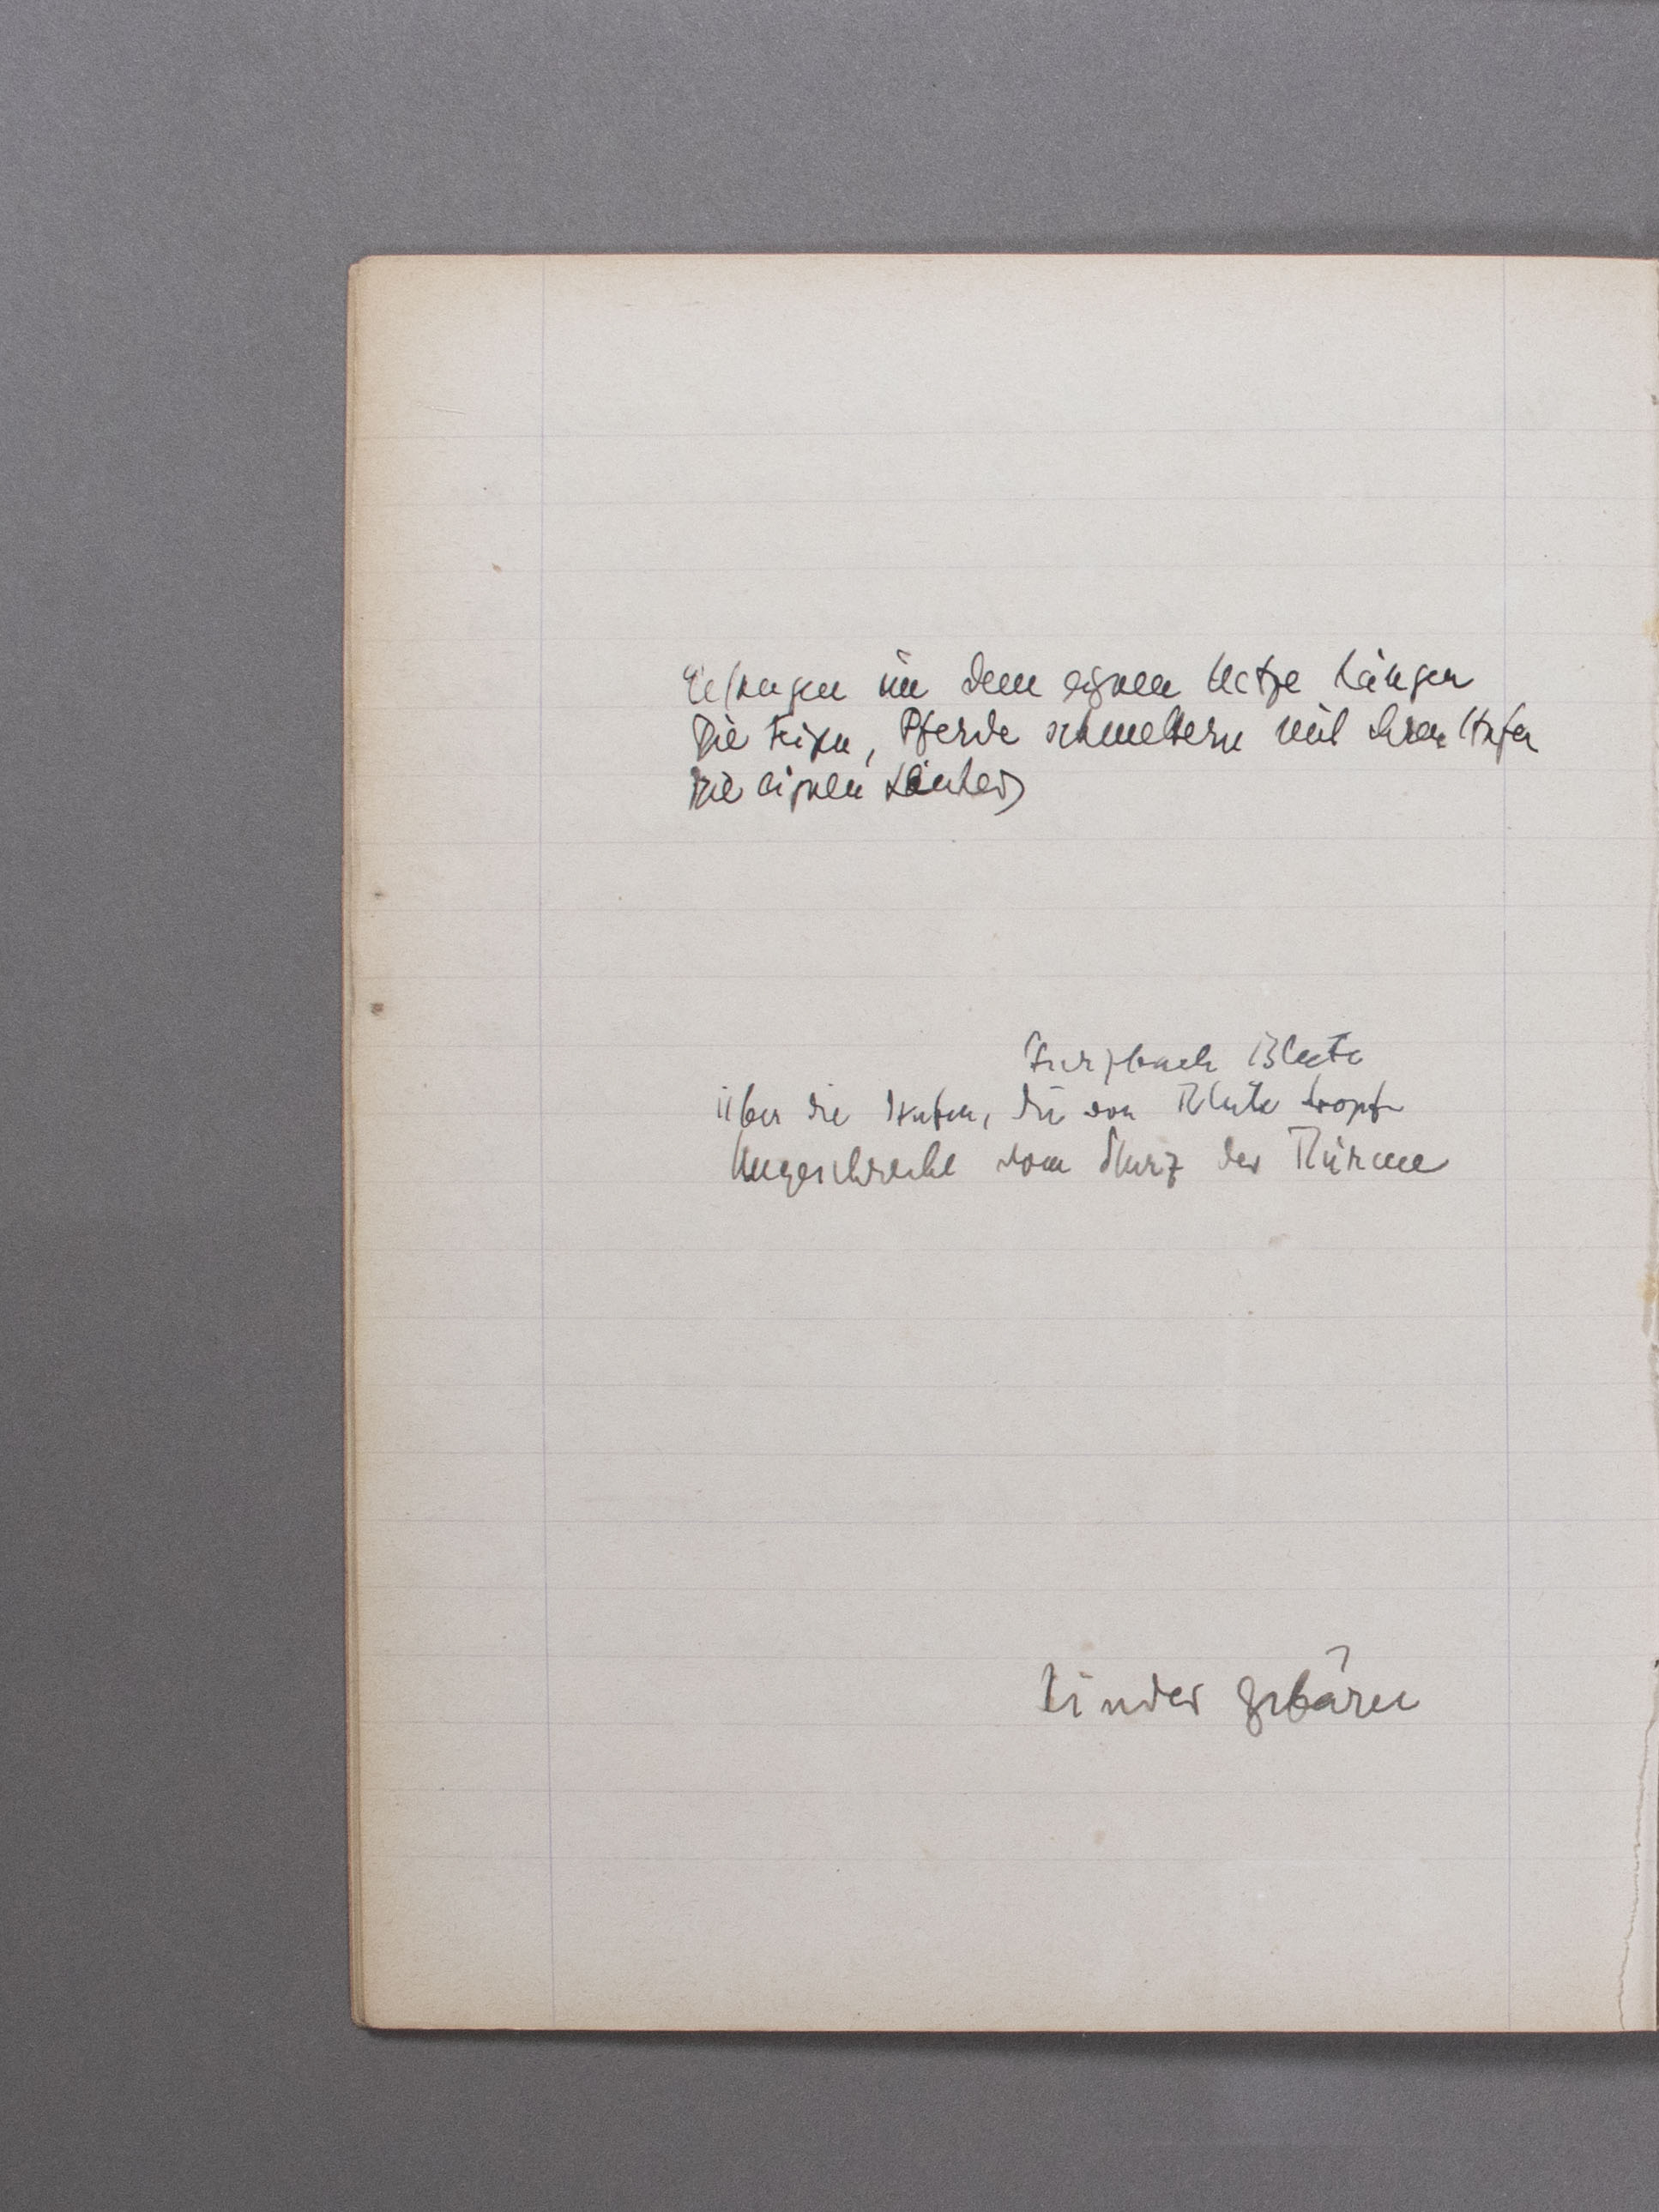 Gefangen in dem eignen Netze hängen
Die Feigen, Pferde schmettern mit ihren Hufen
die eignen
Blute
über die Stufen, die von Blute tropfen
Ungeschreckt vom Sturz der Türme
Kinder gebären